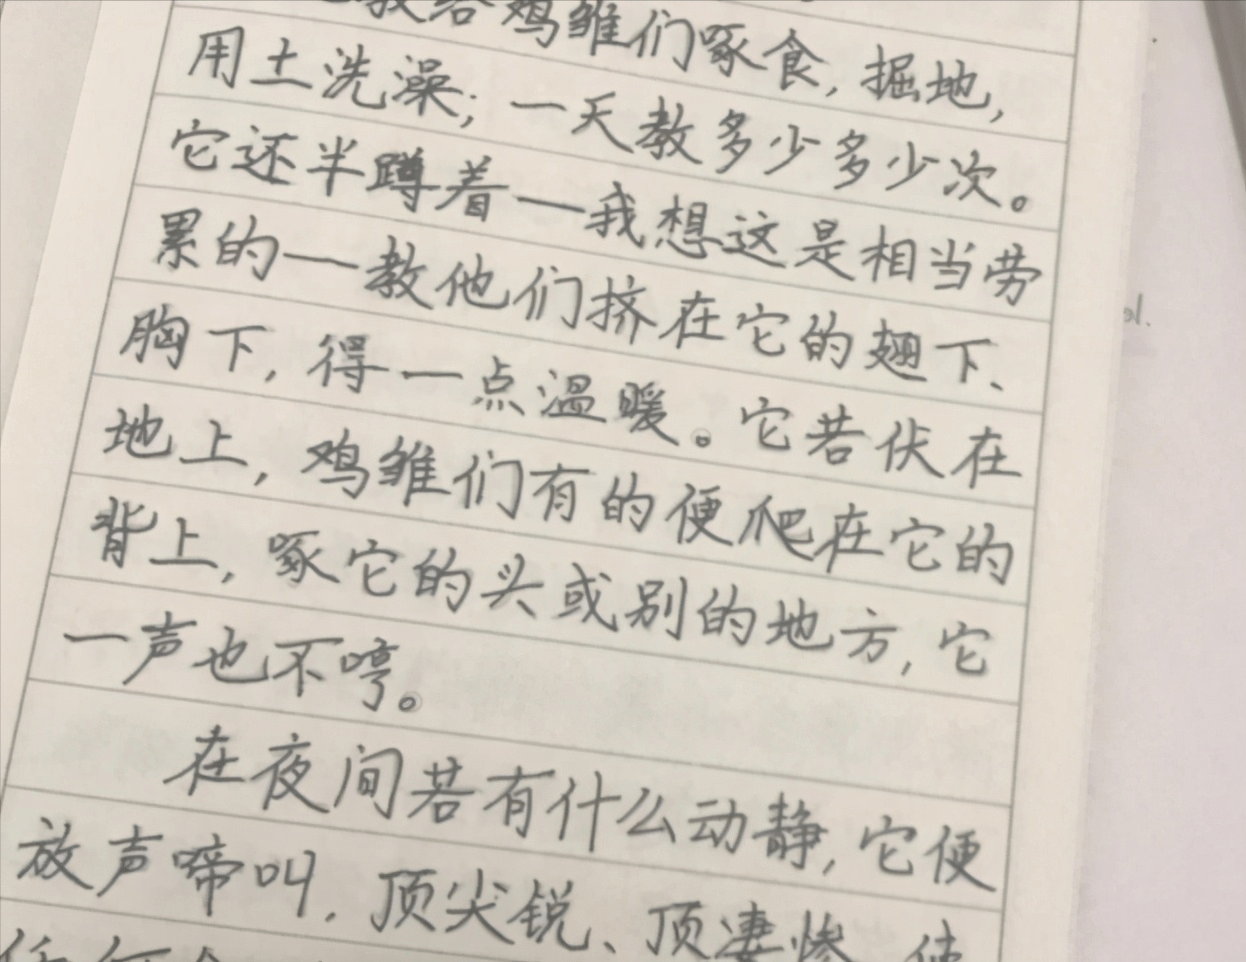 教给鸡雏们啄食,掘地,
用土洗澡;一天教多少多少次。
它还半蹲着——我想这是相当劳
累的——教他们挤在它的翅下、
胸下,得一点温暖。它若伏在
地上,鸡雏们有的便爬在它的
背上,啄它的头或别的地方,它
一声也不哼。
在夜间若有什么动静,它便
放声啼叫,顶尖锐、顶凄惨,使
任何